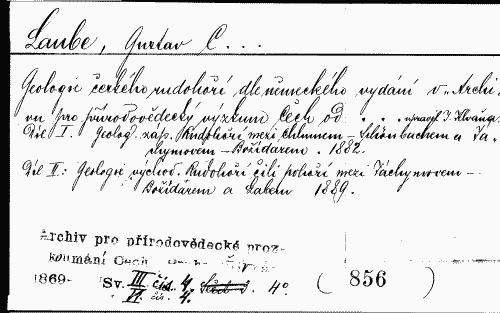 Laube, Gustav C...
Geologie českého rudohoří dle německého vydání v Archi.
vu pro přírodovědecký výzkum Čech od . . . upravil J.
Díl I. Geolog. záp. Rudohoří mezi Chlumem – a Já-
chymovem – Božídarem. 1882.
Díl II: Geologie východ. Rudohoří čili pohoří mezi Jáchymovem –
Božídarem a Labem 1889.
Archiv pro přírodovědecké proz-
koumání Čech
1869- Sv. III čís. 4. 4° ( 856 )
VI. čís. 4.